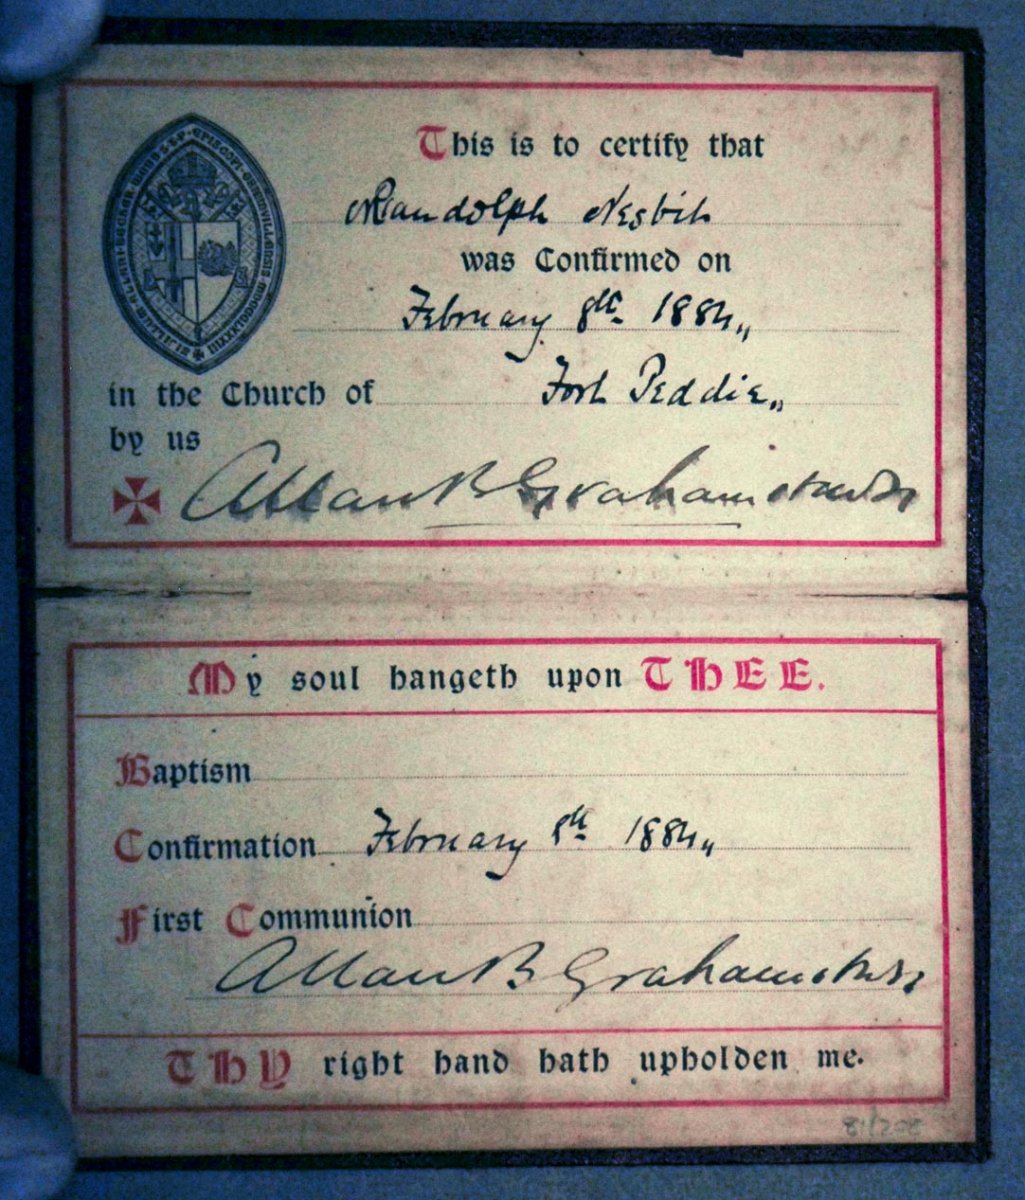 This is to certify that
Randolph Nesbitt
was Confirmed on
February 8th 1884,,
in the Church of Fort Peddie,,
by us
Allan B Grahamstown
My soul hangeth upon THEE.
Baptism
Confirmation February 8th 1884,,
First Communion
Allan B Grahamstown
THY right hand hath upholden me.
81/208